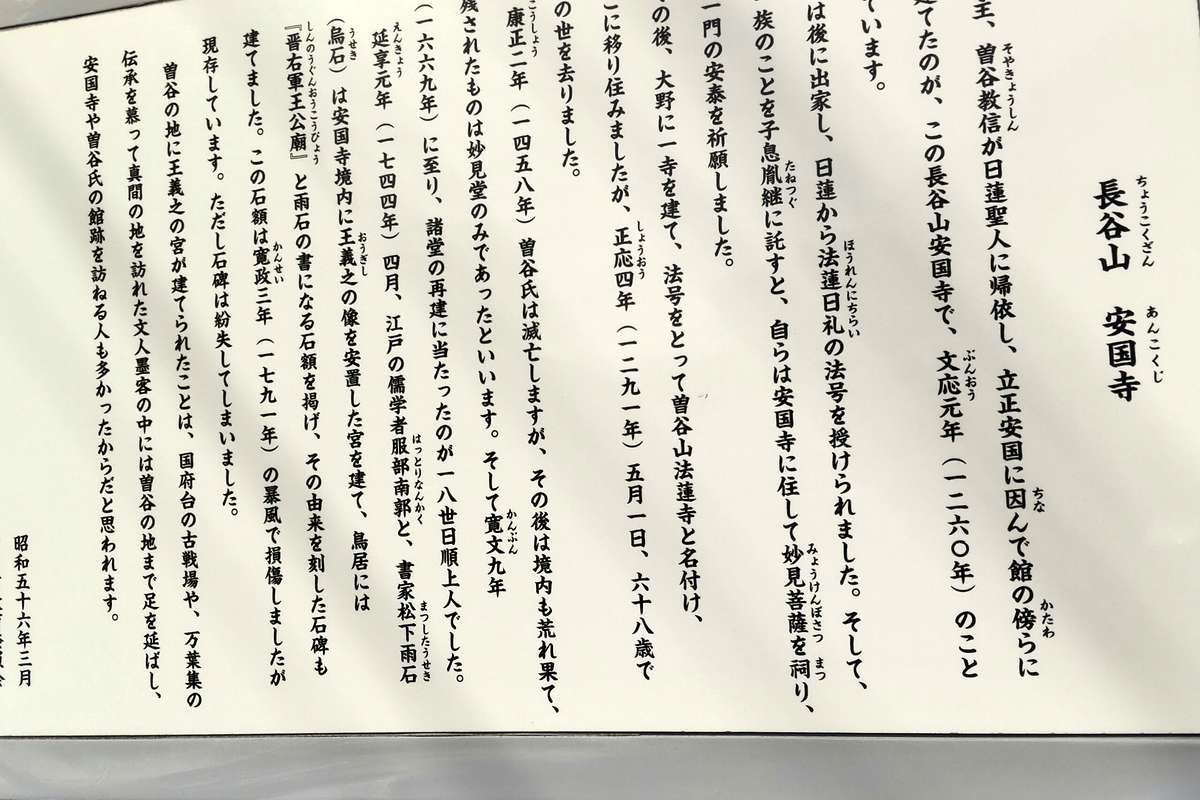 ちょうこくざん あんこくじ
長谷山 安国寺
そやきょうしん ちな かたわ
主、曽谷教信が日蓮聖人に帰依し、立正安国に因んで館の傍らに
ぶんおう
建てたのが、この長谷山安国寺で、文応元年（一二六〇年）のこと
ています。
ほうれんにちらい
は後に出家し、日蓮から法蓮日礼の法号を授けられました。そして、
たねつぐ みょうけんぼさつ まつ
族のことを子息胤継に託すと、自らは安国寺に住して妙見菩薩を祠り、
一門の安泰を祈願しました。
の後、大野に一寺を建て、法号をとって曽谷山法蓮寺と名付け、
しょうおう
こに移り住みましたが、正応四年（一二九一年）五月一日、六十八歳で
の世を去りました。
こうしょう
康正二年（一四五八年）曽谷氏は滅亡しますが、その後は境内も荒れ果て、
かんぶん
残されたものは妙見堂のみであったといいます。そして寛文九年
（一六六九年）に至り、諸堂の再建に当たったのが一八世日順上人でした。
えんきょう はっとりなんかく まつしたうせき
延享元年（一七四四年）四月、江戸の儒学者服部南郭と、書家松下雨石
うせき おうぎし
（烏石）は安国寺境内に王義之の像を安置した宮を建て、鳥居には
しんのうぐんおうこうびょう
『晋右軍王公廟』と雨石の書になる石額を掲げ、その由来を刻した石碑も
かんせい
建てました。この石額は寛政三年（一七九一年）の暴風で損傷しましたが
現存しています。ただし石碑は紛失してしまいました。
曽谷の地に王義之の宮が建てられたことは、国府台の古戦場や、万葉集の
伝承を慕って真間の地を訪れた文人墨客の中には曽谷の地まで足を延ばし、
安国寺や曽谷氏の館跡を訪ねる人も多かったからだと思われます。
昭和五十六年三月